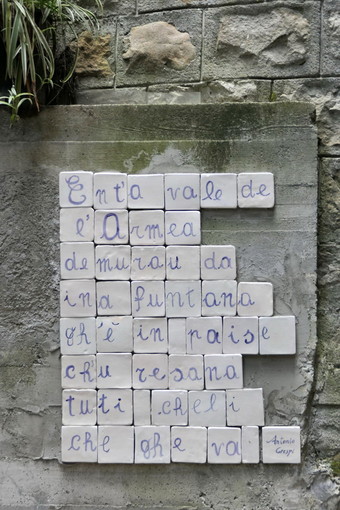 Ent'a vale de
l'Armea
demurau da
ina funtana
gh'è in paise
chu resana
tuti cheli
che ghe va
Antonio
Crespi